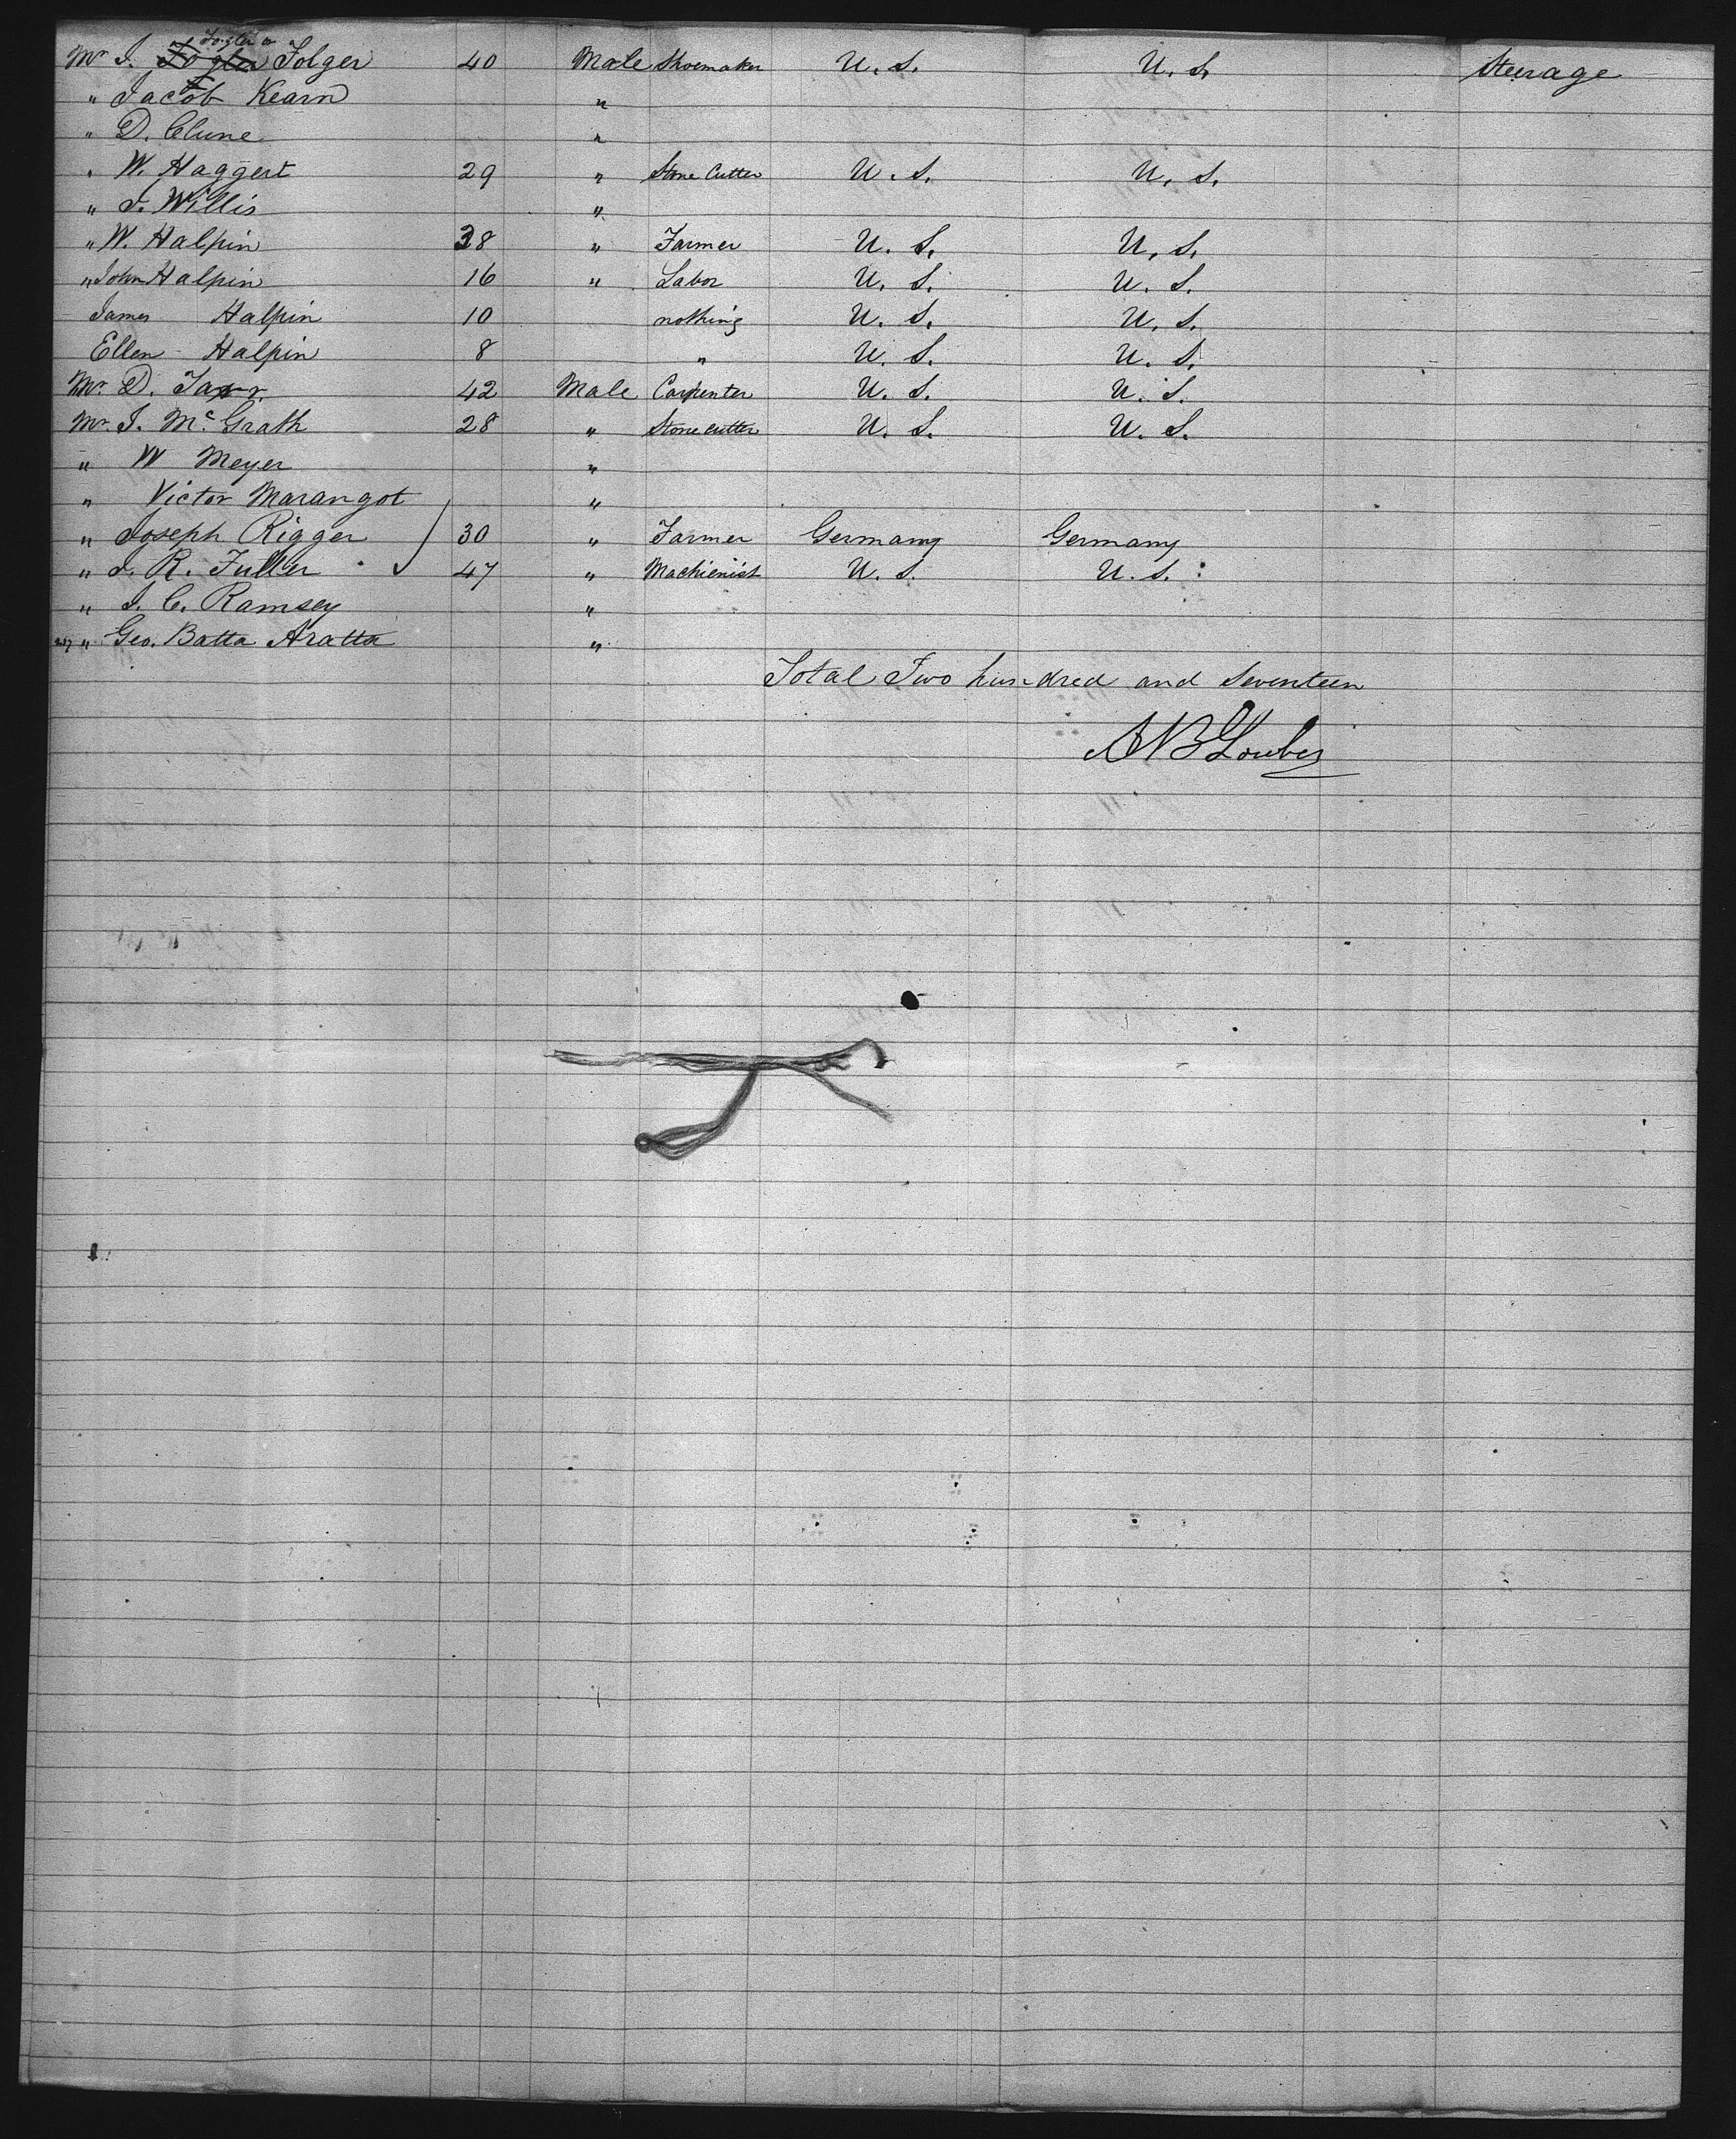 Fogler or
Mr J. Fogler Folger 40 Male Shoemaker U. S. U. S. Steerage
" Jacob Kearn "
" D. Clune "
" W. Haggert 29 " Stone Cutter U. S. U. S.
" J. Willis "
" W. Halpin 38 " Farmer U. S. U. S.
" John Halpin 16 " Labor U. S. U. S.
James Halpin 10 nothing U. S. U. S.
Ellen Halpin 8 " U. S. U. S.
Mr. D. 42 Male Carpenter U. S. U. S.
Mr. J. McGrath 28 " Stone cutter U. S. U. S.
" W Meyer "
" Victor Marangot "
" Joseph Rigger 30 " Farmer Germany Germany
" J. R. Fuller 47 " Machienist U. S. U. S.
" J. C. Ramsey "
" Geo. Batta Aratta "
Total Two hundred and Seventeen